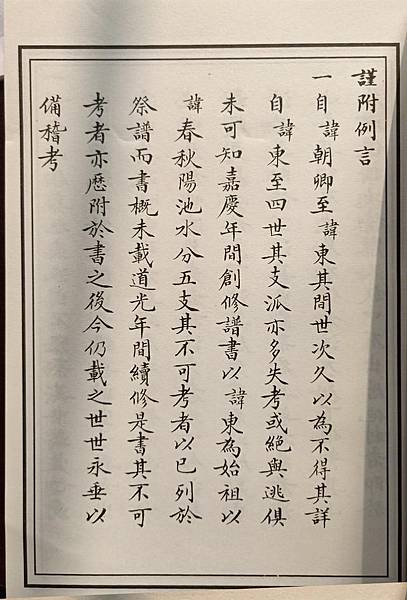 謹附例言
一自 諱朝卿至 諱東其間世次久以為不得其詳
自 諱東至四世其支派亦多失考或絕與逃俱
未可知嘉慶年間創修譜書以 諱東為始祖以
諱春秋陽池水分五支其不可考者以已列於
祭譜而書概未載道光年間續修是書其不可
考者亦歷附於書之後今仍載之世世永垂以
備稽考